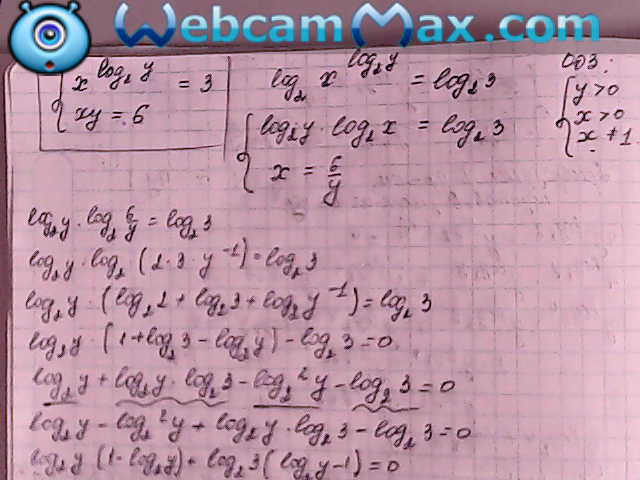 WebcamMax.com
x^{log₂y} = 3
xy = 6
log₂ x^{log₂y} = log₂3
log₂y · log₂x = log₂3
x = 6/y
ОДЗ:
y > 0
x > 0
x ≠ 1
log₂y · log₂ 6/y = log₂3
log₂y · log₂ (2·3·y⁻¹) = log₂3
log₂y · (log₂2 + log₂3 + log₂y⁻¹) = log₂3
log₂y · (1 + log₂3 − log₂y) − log₂3 = 0
log₂y + log₂y · log₂3 − log₂²y − log₂3 = 0
log₂y − log₂²y + log₂y · log₂3 − log₂3 = 0
log₂y (1 − log₂y) + log₂3 (log₂y − 1) = 0